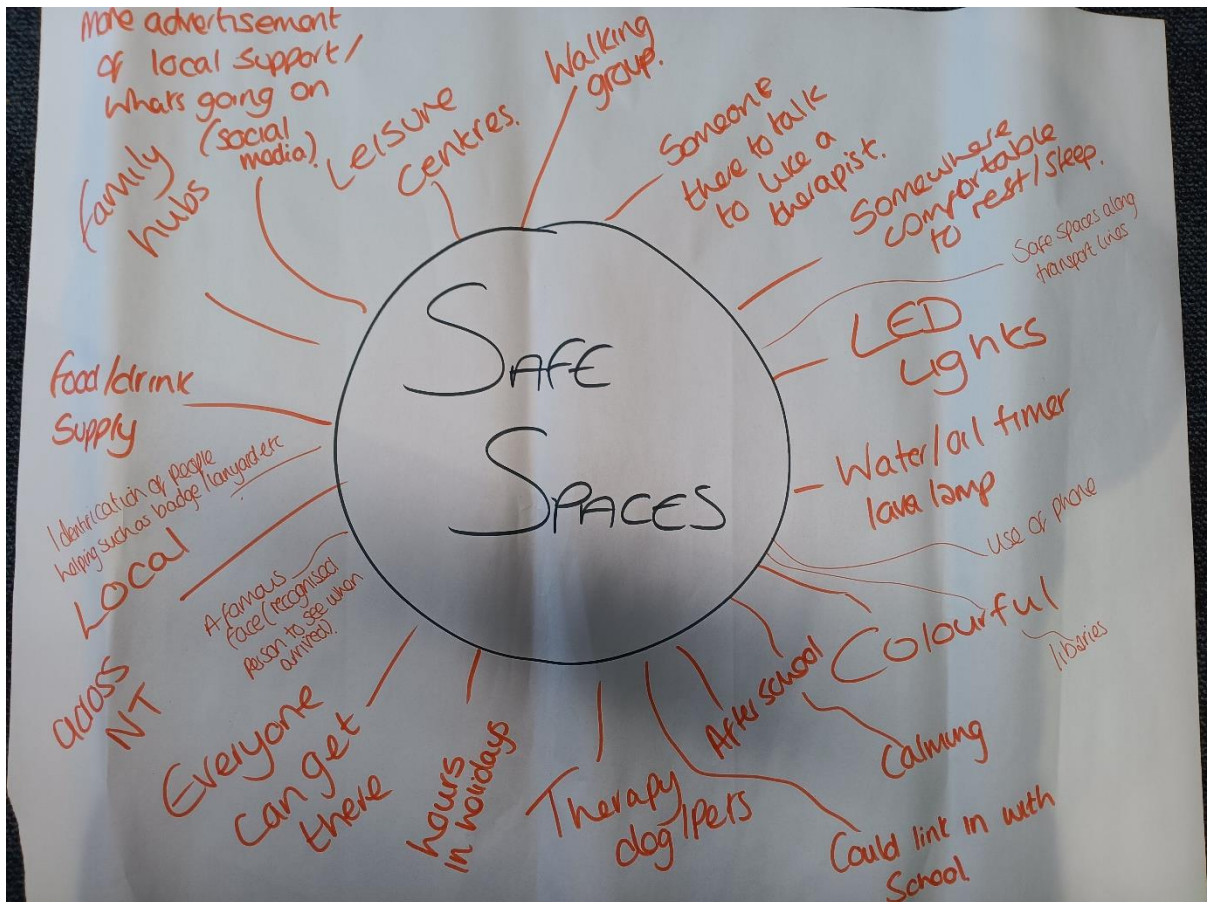 SAFE
SPACES
More advertisement
of local support/
whats going on
(social
media).
Leisure
centres.
Walking
group.
Someone
there to talk
to like a
therapist.
Somewhere
comfortable
to rest/sleep.
Safe spaces along
transport lines
LED
Lights
Water/oil timer
lava lamp
use of phone
Colourful
libaries
Calming
After school
Could link in with
School.
Therapy
dog/pets
hours
in holidays
Everyone
can get
there
A famous
face (recognised
person to see when
arrived).
Local
across
NT
Identification of people
helping such as badge/lanyard etc
food/drink
Supply
family
hubs